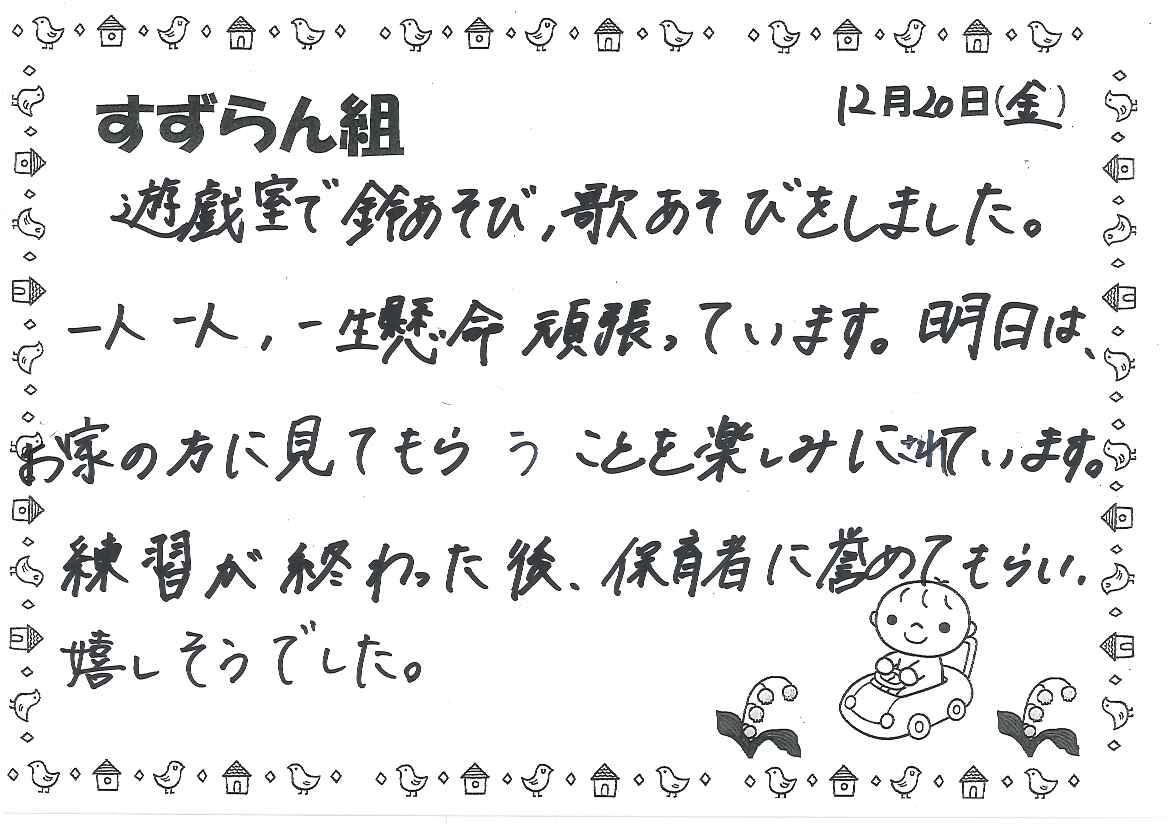 すずらん組
12月20日(金)
遊戯室で鈴あそび,歌あそびをしました。
一人一人,一生懸命頑張っています。明日は、
お家の方に見てもらうことを楽しみにされています。
練習が終わった後、保育者に誉めてもらい、
嬉しそうでした。